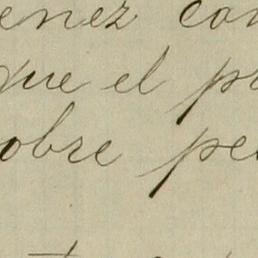 enez con
que el pr
obre pe